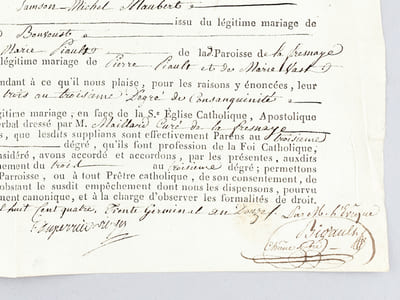 Samson-Michel Maubert
issu du légitime mariage de
Bonvouste
Marie Piault de la Paroisse de la fresnaye
légitime mariage de Pierre Piault et de Marie Vast
ndant à ce qu'il nous plaise, pour les raisons y énoncées, leur
trois au troisieme Degré de Consanguinité
gitime mariage, en face de la Ste Église Catholique, Apostolique
erbal dressé par M. Curé de la fresnaye
s, que lesdits supplians sont effectivement Parens au troisieme
dégré, qu'ils font profession de la Foi Catholique;
nsidéré, avons accordé et accordons, par les présentes, auxdits
nement du trois au troisieme dégré; permettons
Paroisse, ou à tout Prêtre catholique, de son consentement, de
obstant le susdit empêchement dont nous les dispensons, pourvu
ment canonique, et à la charge d'observer les formalités de droit.
l huit Cent quatre, trente Germinal an Douze. Par M. l'Evêque
Bigault